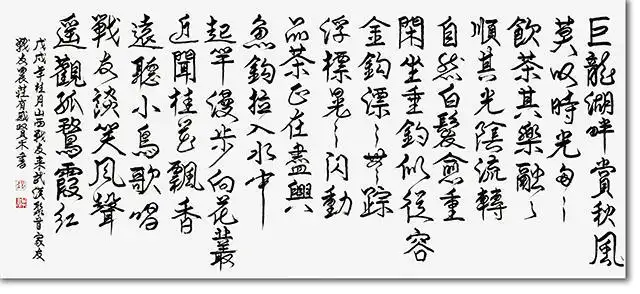 巨龍湖畔賞秋風
莫叹時光匆〻
飲茶其樂融〻
順其光陰流轉
自然白髮愈重
閑坐垂鈎似從容
金鈎漂〻無踪
浮標晃〻闪動
品茶正在盡興
魚鈎拉入水中
起竿缦步向花叢
近聞桂花飄香
遠聽小鳥歌唱
戰友談笑風聲
遥觀孤鶩霞紅
戊戌年桂月山西戰友来武漢聚首家友
戰友農莊有感